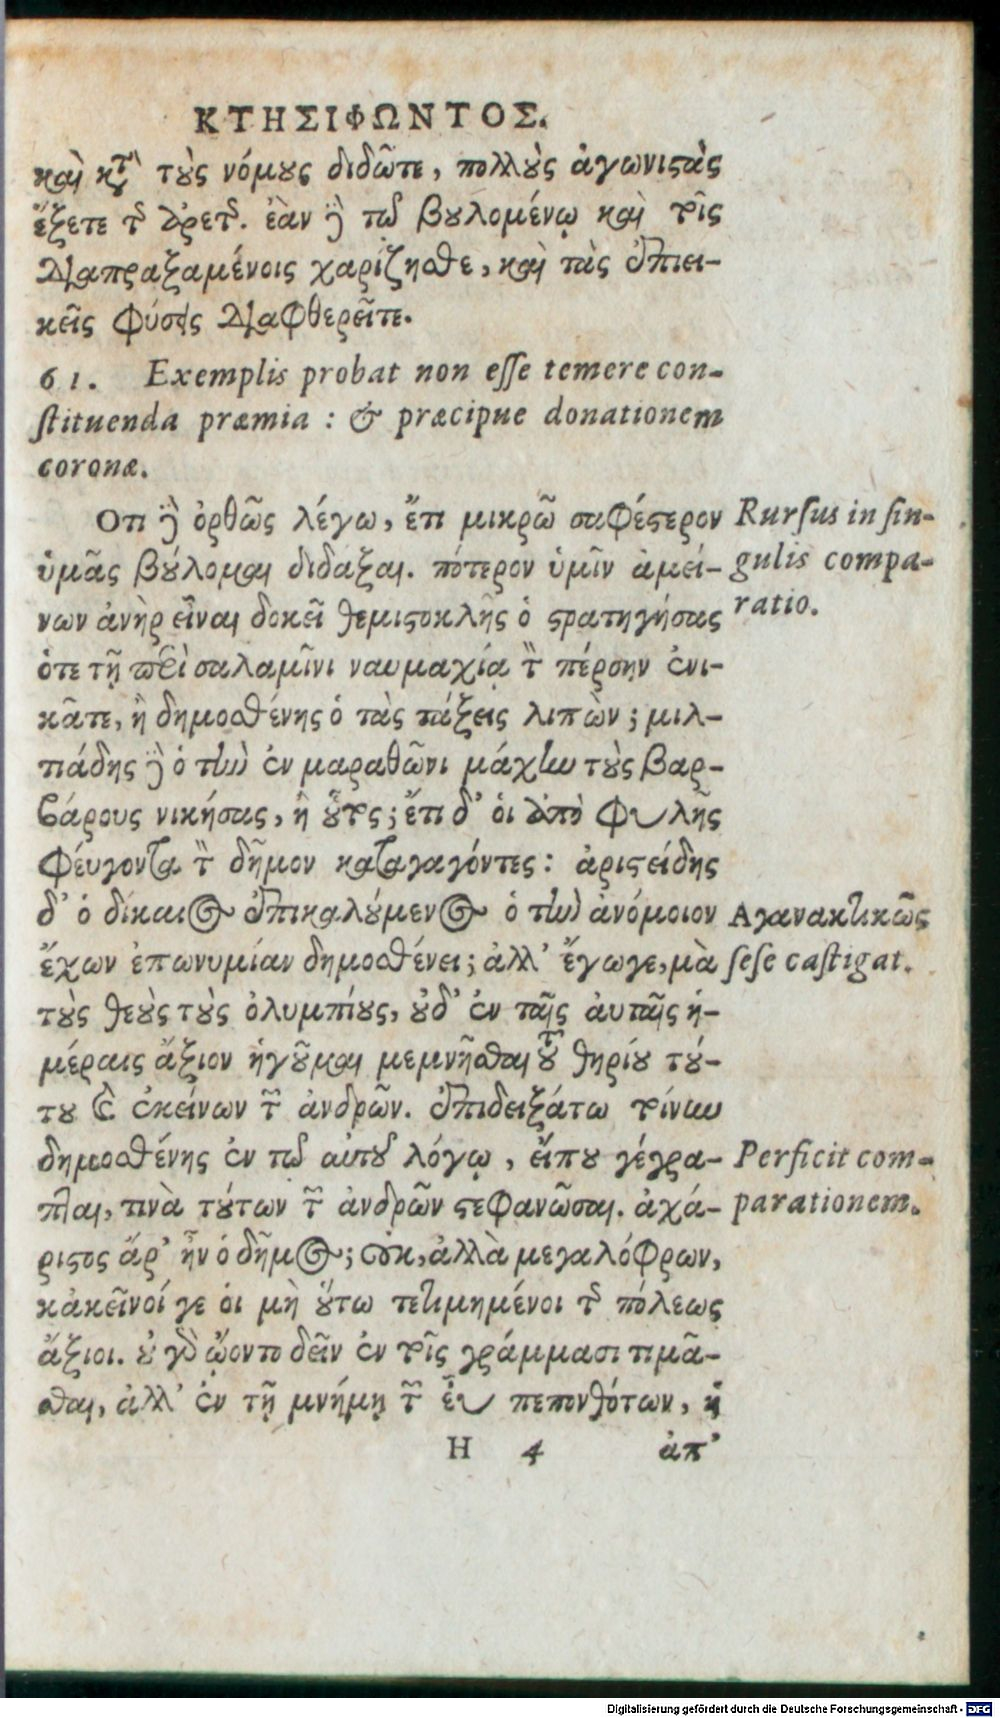 ΚΤΗΣΙΦΩΝΤΟΣ.
καὶ κατὰ τοὺς νόμους διδῶτε, πολλοὺς ἀγωνιστὰς
ἕξετε τῆς ἀρετῆς. ἐὰν δὲ τῷ βουλομένῳ καὶ τοῖς
διαπραξαμένοις χαρίζησθε, καὶ τὰς ἐπιει-
κεῖς φύσεις διαφθερεῖτε.
61. Exemplis probat non esse temere con-
stituenda præmia: & præcipue donationem
coronæ.
Οτι δὲ ὀρθῶς λέγω, ἔτι μικρῶ σαφέστερον
ὑμᾶς βούλομαι διδαξαι. πότερον ὑμῖν ἀμεί-
νων ἀνὴρ εἶναι δοκεῖ θεμιστοκλῆς ὁ στρατηγήσας
ὁτε τῇ περὶ σαλαμῖνι ναυμαχίᾳ τὸν πέρσην ἐνι-
κᾶτε, ἢ δημοσθένης ὁ τὰς τάξεις λιπὼν; μιλ-
τιάδης δὲ ὁ τὴν ἐν μαραθῶνι μάχην τοὺς βαρ-
βάρους νικήσας, ἢ οὗτος; ἔτι δ' οἱ ἀπὸ φυλῆς
φέυγοντα τὸν δῆμον καταγαγόντες: ἀριστείδης
δ' ὁ δίκαιος ἐπικαλούμενος ὁ τὴν ἀνόμοιον
ἔχων ἐπωνυμίαν δημοσθένει; ἀλλ' ἔγωγε, μὰ
τοὺς θεοὺς τοὺς ὀλυμπίους, οὐδ' ἐν ταῖς ἀυταῖς ἡ-
μέραις ἄξιον ἡγοῦμαι μεμνῆσθαι τοῦ θηρίου τού-
του καὶ ἐκείνων τῶν ἀνδρῶν. ἐπιδειξάτω τοίνυν
δημοσθένης ἐν τῷ αὐτοῦ λόγῳ, εἴπου γέγρα-
πται, τινὰ τούτων τῶν ἀνδρῶν στεφανῶσαι. ἀχά-
ριστος ἄρ' ἦν ὁ δῆμος; οὐκ, ἀλλὰ μεγαλόφρων,
κἀκεῖνοί γε οἱ μὴ οὕτω τετιμημένοι τῆς πόλεως
ἄξιοι. οὐ γὰρ ᾤοντο δεῖν ἐν τοῖς γράμμασι τιμᾶ-
σθαι, ἀλλ' ἐν τῇ μνήμῃ τῶν εὖ πεπονθότων, ἡ
Η 4 ἀπ'
Rursus in sin-
gulis compa-
ratio.
Αγανακτικῶς
sese castigat.
Perficit com-
parationem.
Digitalisierung gefördert durch die Deutsche Forschungsgemeinschaft - DFG